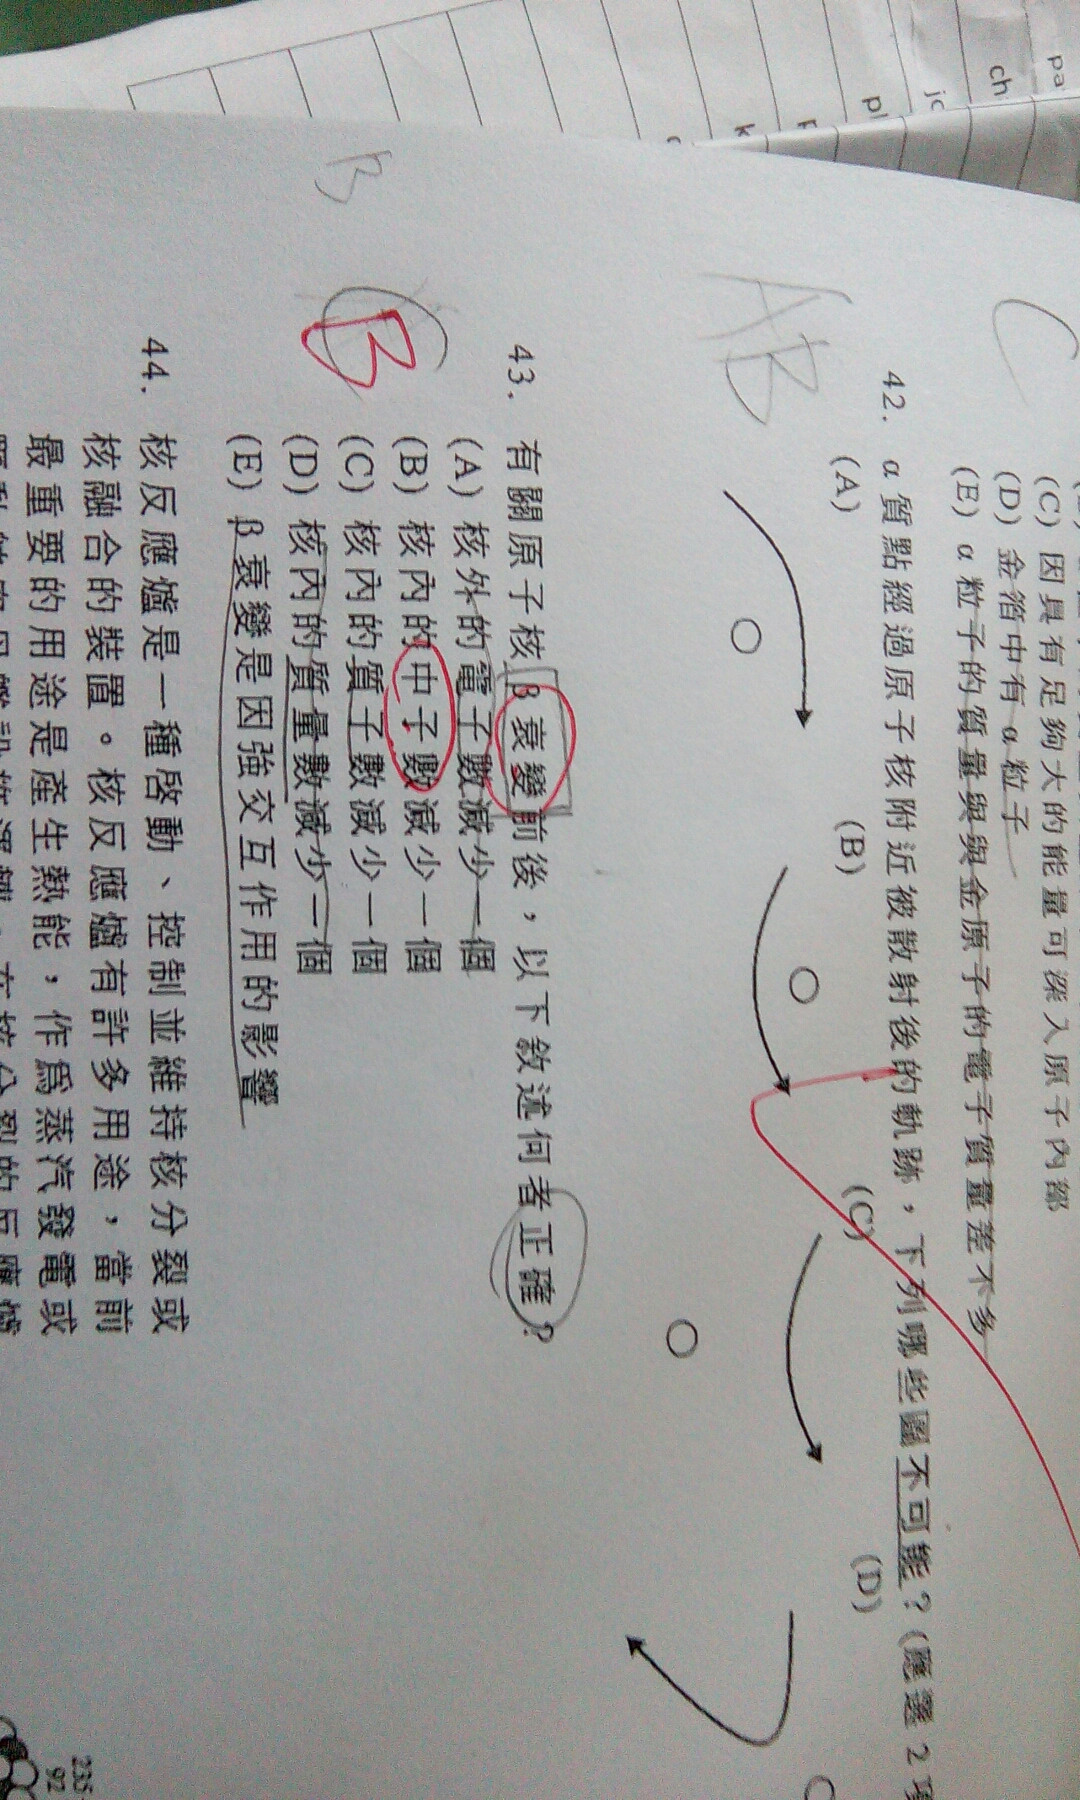 pa
ch
jc
pl
k
(C) 因具有足夠大的能量可深入原子內部
(D) 金箔中有 α 粒子
(E) α 粒子的質量與與金原子的電子質量差不多
C
42. α 質點經過原子核附近被散射後的軌跡，下列哪些圖不可能？(應選 2 項
(A) (B) (C) (D)
AB
43. 有關原子核 β 衰變前後，以下敘述何者正確？
(A) 核外的電子數減少一個
(B) 核內的中子數減少一個
(C) 核內的質子數減少一個
(D) 核內的質量數減少一個
(E) β 衰變是因強交互作用的影響
B
B
44. 核反應爐是一種啓動、控制並維持核分裂或
核融合的裝置。核反應爐有許多用途，當前
最重要的用途是產生熱能，作爲蒸汽發電或
235
92